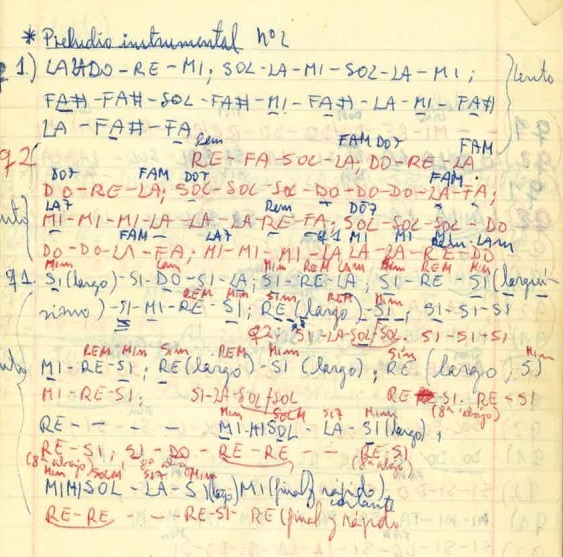 * Preludio instrumental nº 2
q 1.) LA-LA-DO-RE-MI; SOL-LA-MI-SOL-LA-MI;
FA#-FA#-SOL-FA#-MI-FA#-LA-MI-FA# Lento
LA-FA#-FA
Rem FAM DO7 FAM
q2 RE-FA-SOL-LA; DO-RE-LA
DO7 FAM DO7 FAM
DO-RE-LA; SOL-SOL-SOL-DO-DO-DO-LA-FA;
LA7 Rem DO7
MI-MI-MI-LA-LA-LA-RE-FA; SOL-SOL-SOL-DO
FAM LA7 q1 MI MI Rem LAm
DO-DO-LA-FA; MI-MI-MI-LA-LA-LA-RE-DO
Mim Lam Mim REM Lam Mim REM Mim
q1. SI(largo)-SI-DO-SI-LA; SI-RE-LA; SI-RE-SI(larguí-
REM Mim Sim REM Mim
simo)-SI-MI-RE-SI; RE(largo)-SI; SI-SI-SI
q2: SI-LA-SOL/SOL. SI-SI-SI
REM Mim Sim REM Mim Sim Mim
MI-RE-SI; RE(largo)-SI(largo); RE(largo) SI
MI-RE-SI; SI-LA-SOL/SOL RE SI. RE-SI
(8ª abajo)
Mim SOLM SI7 Mim
RE - - - - MI-MISOL-LA-SI(largo);
RE-SI; SI-DO-RE-RE - - RE-SI
(8ª abajo) 8ª abajo (8ª abajo)
Mim SOLM SI7 Mim
MIMISOL-LA-SI(largo) MI(final y rápido)
cortante
RE-RE - - RE-SI-RE(final y rápido